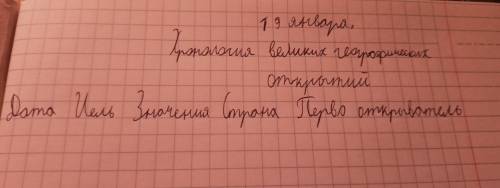 13 января.
Хронология великих географических
открытий
Дата Цель Значения Страна Перво открыватель